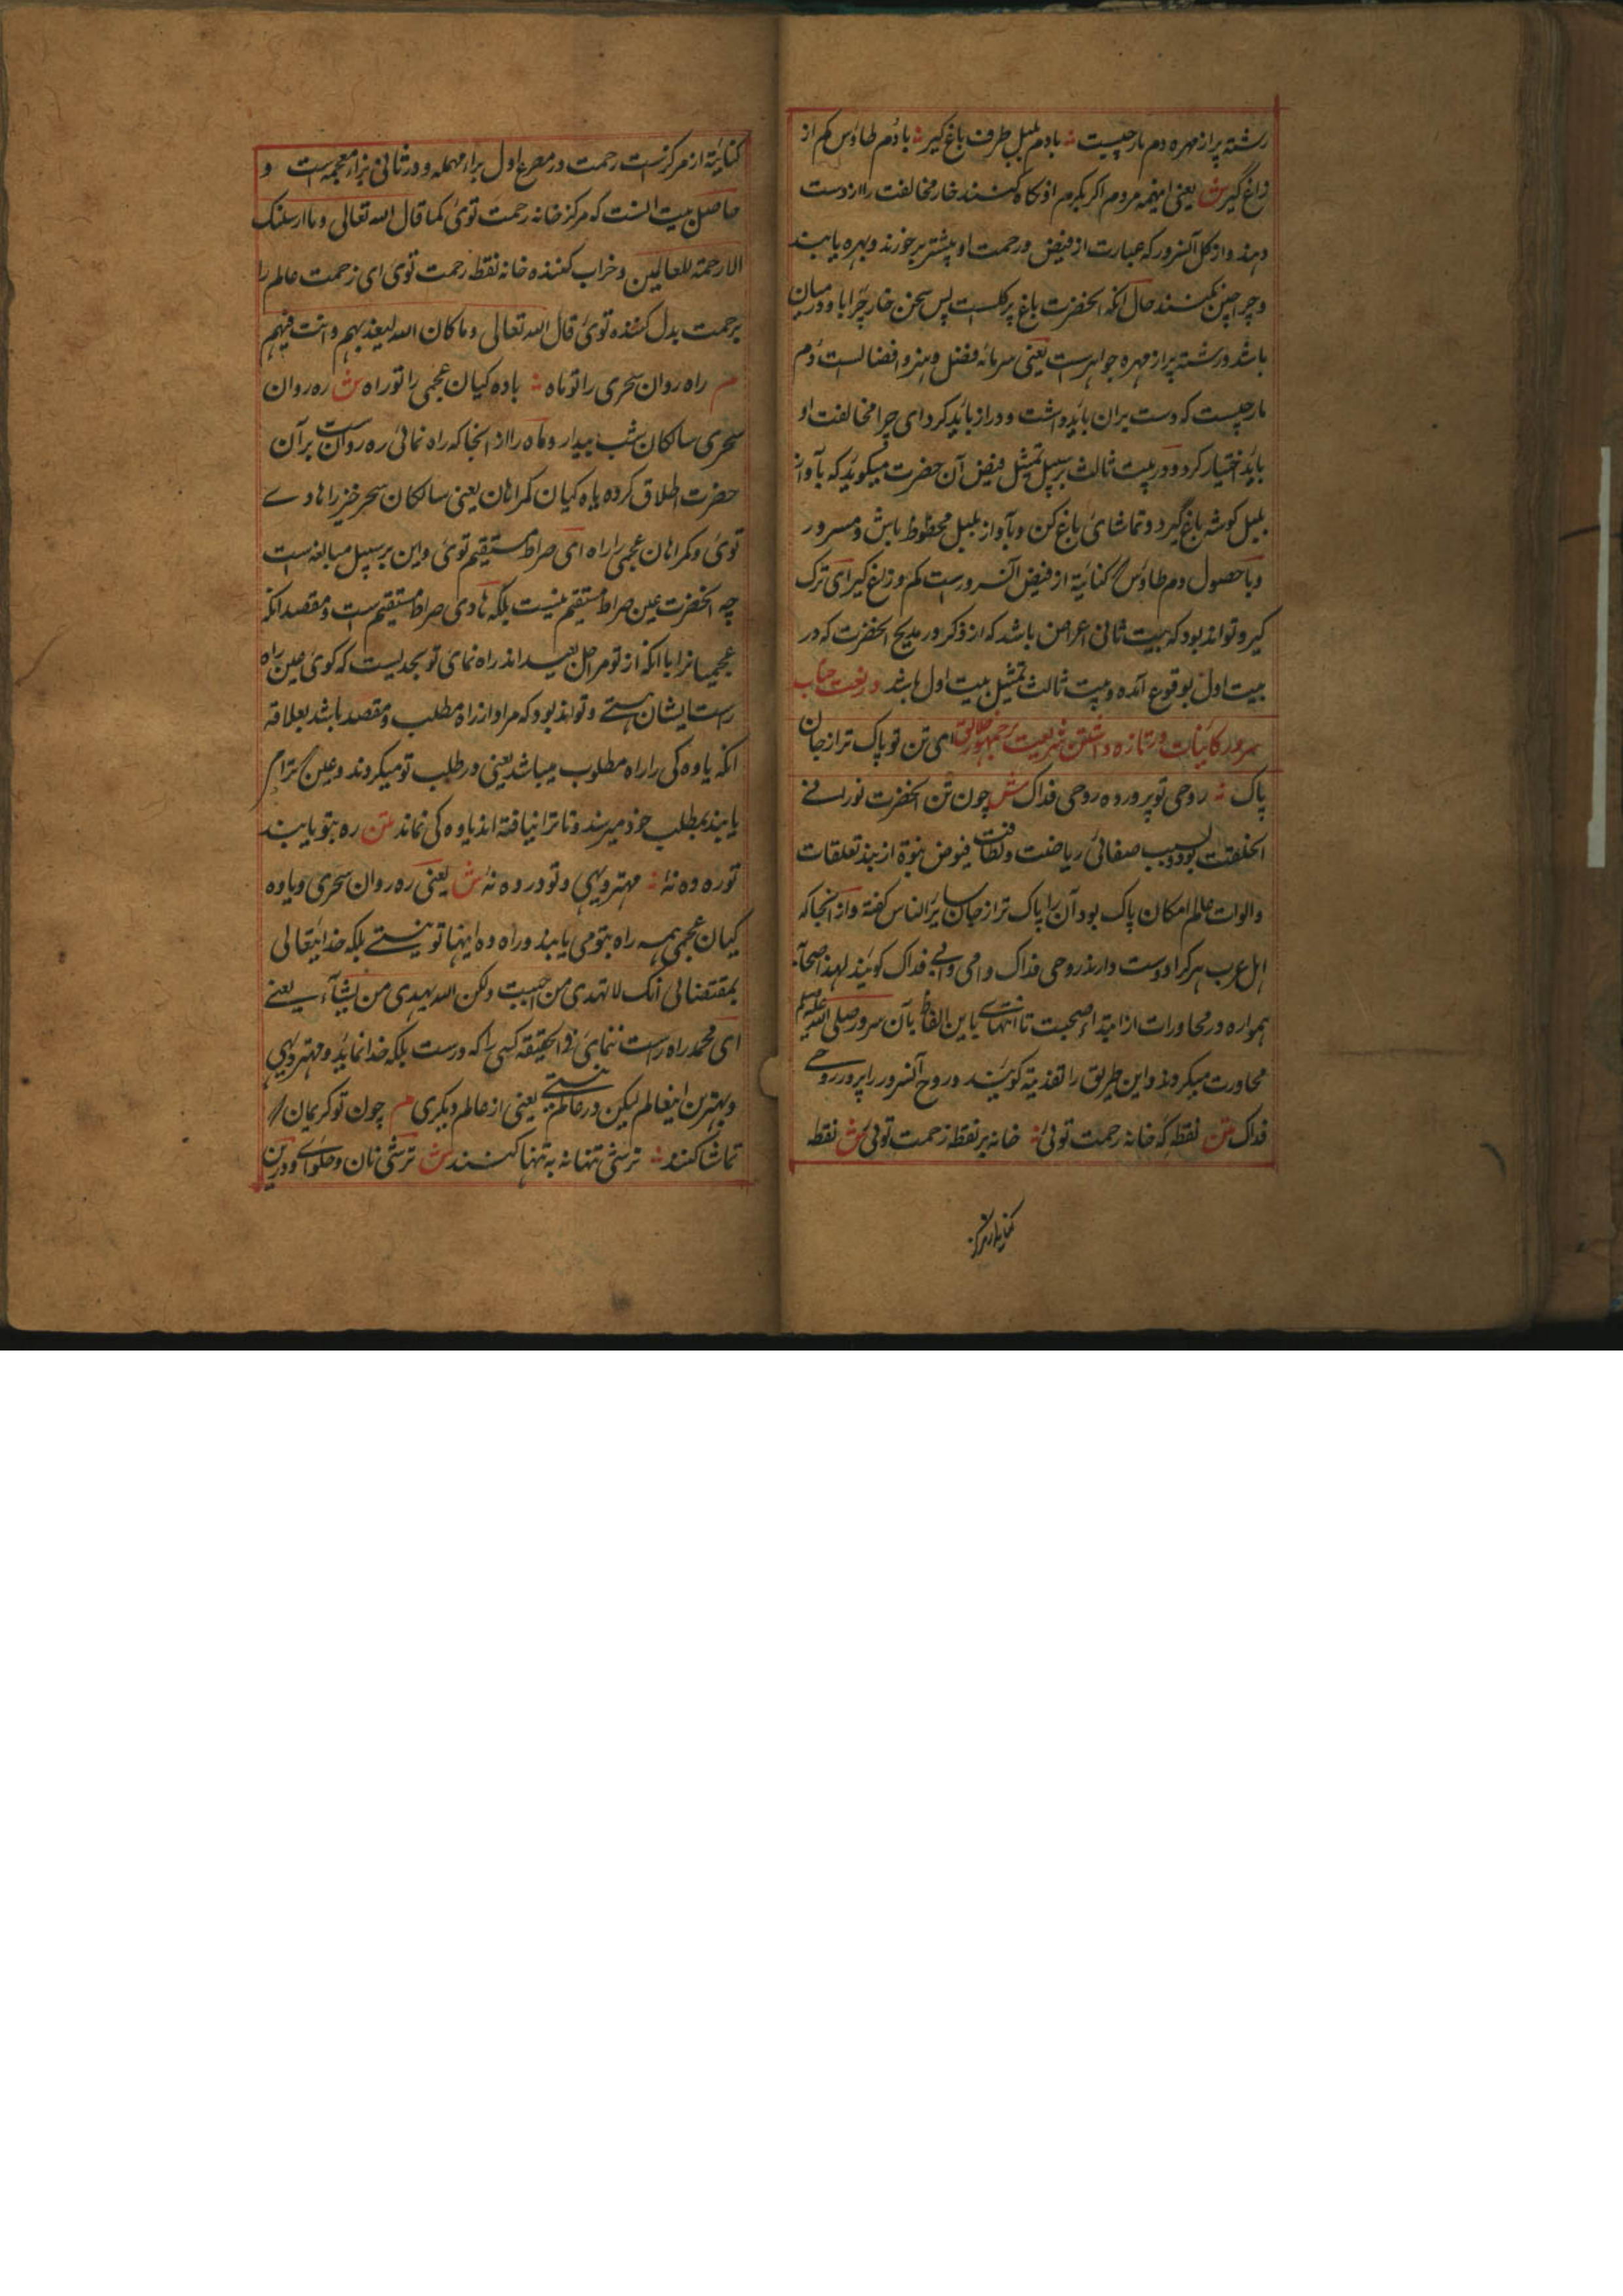 رشته پر از مهره دم مار چیست ؞ بادم بلبل طرف باغ گیر ؞ بادم طاؤس کم از
زاغ گیر ش یعنی اینهمه مردم اگر بکرم او نگاه کنند خار مخالفت را از دست
دهند و از گل آنسرور که عبارت از فیض و رحمت او بیشتر برخورند و بهره یابند
و چرا چنین نکنند حال آنکه آنحضرت باغ پر گلست پس سخن خار چرا با و درمیان
باشد و رشته پر از مهره جواهرست یعنی سرمایه فضل و هنر و افضالست دم
مار چیست که دست بران باید داشت و دراز باید کرد ای چرا مخالفت او
باید اختیار کرد و در بیت ثالث بر سبیل تمثیل فیض آن حضرت میگوید که بآواز
بلبل گوشه باغ گیرد و تماشای باغ کن و بآواز بلبل محظوظ باش و مسرور
و با حصول دم طاؤس کنایة از فیض آنسرورست کم و زاغ گیر ای ترک
گیر و تواند بود که بیت ثانی اعراض باشد که از ذکر در مدیح آنحضرت که در
بیت اول بوقوع آمده و بیت ثالث تمثیل بیت اول باشد در نعت جناب
سرور کاینات در تازه داشتن شریعت بر جمهور خلائق ای تن تو پاک تر از جان
پاک ؞ روحی تو پرورده روحی فداک ش چون تن آنحضرت نورانی
الخلقت بود و بسبب صفائی ریاضت و لطافت فیوض نبوة از بند تعلقات
و الوات عالم امکان پاک بود آن را پاک تر از جان سایر الناس گفته و از آنجا که
اهل عرب هر کرا دوست دارند روحی فداک و امی و ابی فداک گویند لهذا اصحاب
همواره در محاورات از ابتداء صحبت تا انتهای باین الفاظ بآن سرور صلی الله علیه وسلم
محاورت میکردند و این طریق را تفدیة گویند و روح آنسرور را پرور روحی
فداک متن نقطه گه خانه رحمت توئی ؞ خانه بر نقطه زحمت توئی ش نقطه
کنایة از مرکز
کنایة از مرکزست رحمت در مصرع اول براء مهمله و در ثانی بزاء معجمه است و
حاصل بیت آنست که مرکز خانه رحمت توئی کما قال الله تعالی و ما ارسلنک
الا رحمة للعالمین و خراب کننده خانه نقطه زحمت توئی ای زحمت عالم را
برحمت بدل کننده توئی قال الله تعالی و ما کان الله لیعذبهم و انت فیهم
م راه روان سحری را تو ماه ؞ یاوه کیان عجمی را تو راه ش ره روان
سحری سالکان شب بیدار و ماه را از آنجا که راه نمائی ره روانست بر آن
حضرت اطلاق کرده یاوه کیان گمراهان یعنی سالکان سحر خیز را هادے
توئی و گمراهان عجمی را راه ای صراط مستقیم توئی و این بر سبیل مبالغه است
چه آنحضرت عین صراط مستقیم نیست بلکه هادی صراط مستقیم ست و مقصد آنکه
عجمیانرا با آنکه از تو مراحل بعید اند راه نمای تو بحدیست که گوئی عین راه
راست ایشان هستے و تواند بود که مراد از راه مطلب و مقصد باشد بعلاقه
آنکه یاوه کی را راه مطلوب میباشد یعنی در طلب تو میگردند و عین ترا م
یابند بمطلب خود میرسند و تا ترا نیافته اند یاوه کی نماند متن ره بتو یابند
تو ره ده نۀ ؞ مهتر دهی و تو در ده نۀ ش یعنی ره روان سحری و یاوه
کیان عجمی همه راه بتو می یابند و راه ده اینها تو نیستے بلکه خدایتعالی
بمقتضائی انک لا تهدی من احببت و لکن الله یهدی من یشآء یعنے
ای محمد راه راست ننمائی فی الحقیقه کسی را که دوست بلکه خدا نماید و مهتر دهی
و بهترین اینعالم لیکن در عالم نیستے یعنی از عالم دیگری م چون تو کریمان
تماشا کنند ؞ ترستی تنها نه به تنها کنند ش ترستی نان و حلوای و درین